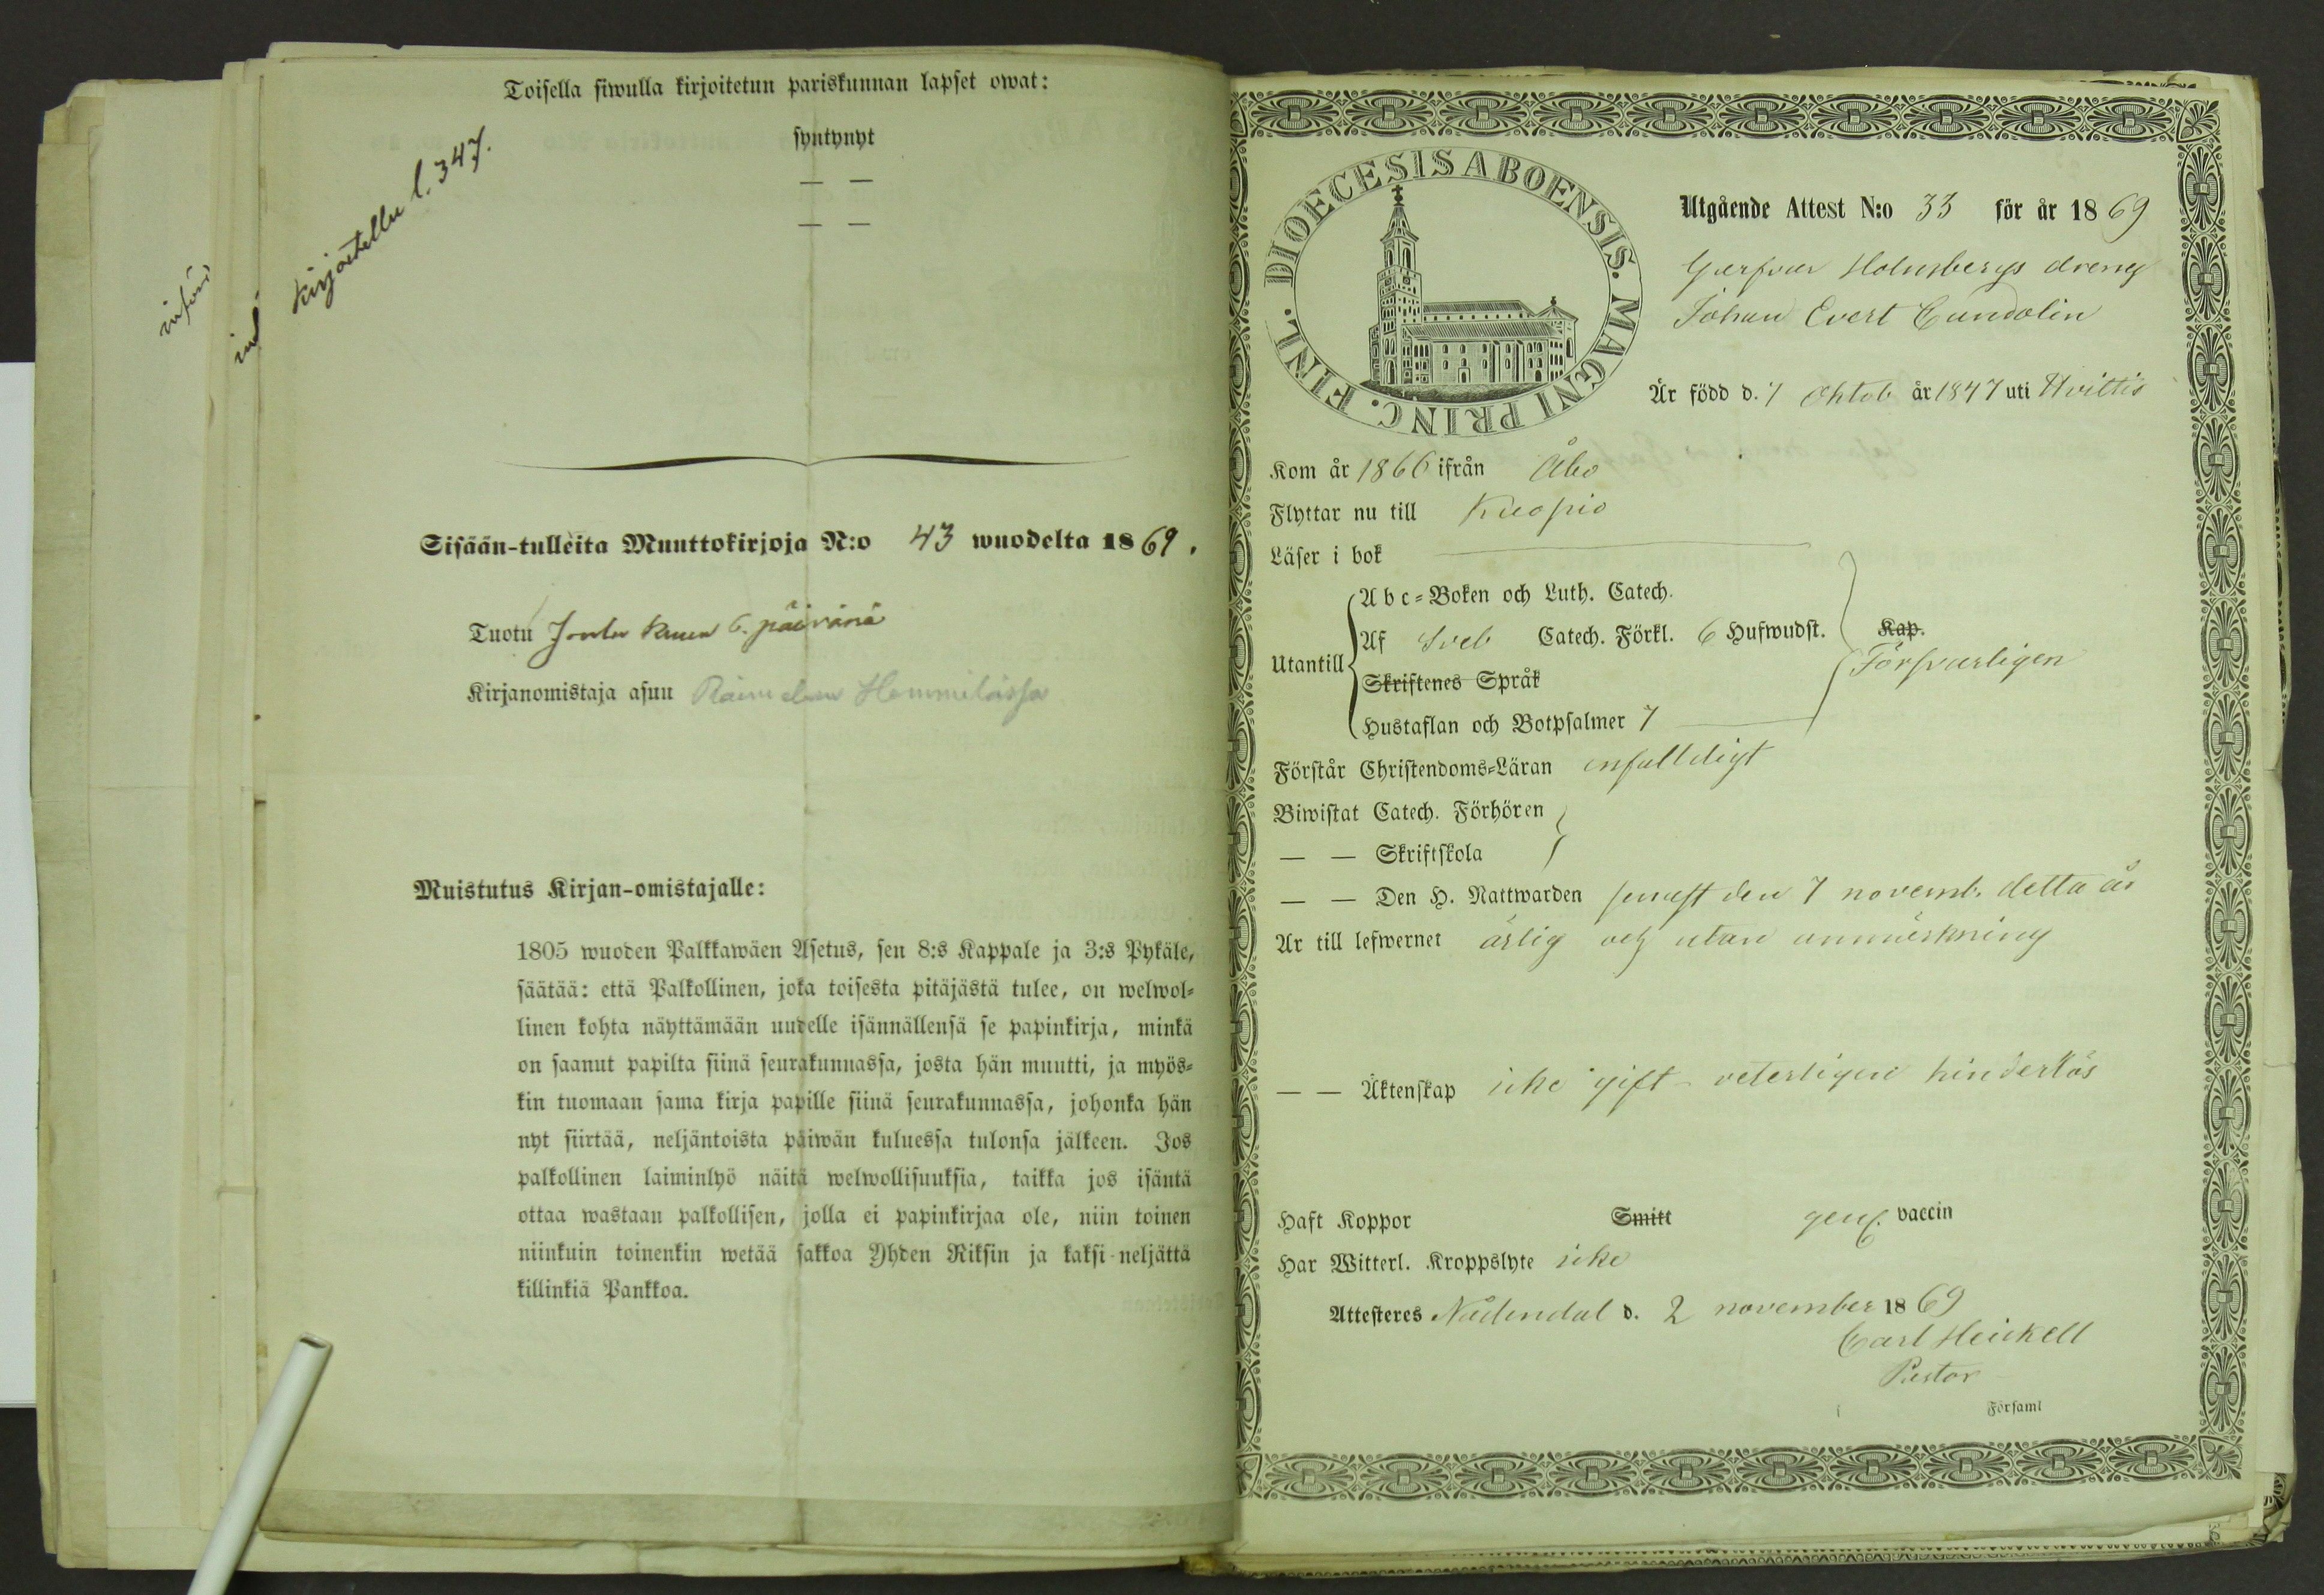 Toisella siwulla kirjoitetun pariskunnan lapset owat:
syntynyt
— —
— —
kirjoitellu l. 347.
införd
Sisään-tulleita Muuttokirjoja N:o 43 wuodelta 1869.
Tuotu Joulu kuun 6. päivänä
Kirjanomistaja asuu Hemmilässä
Muistutus Kirjan-omistajalle:
1805 wuoden Palkkawäen Asetus, sen 8:s Kappale ja 3:s Pykäle,
säätää: että Palkollinen, joka toisesta pitäjästä tulee, on welwol-
linen kohta näyttämään uudelle isännällensä se papinkirja, minkä
on saanut papilta siinä seurakunnassa, josta hän muutti, ja myös-
kin tuomaan sama kirja papille siinä seurakunnassa, johonka hän
nyt siirtää, neljäntoista päiwän kuluessa tulonsa jälkeen. Jos
palkollinen laiminlyö näitä welwollisuuksia, taikka jos isäntä
ottaa wastaan palkollisen, jolla ei papinkirjaa ole, niin toinen
niinkuin toinenkin wetää sakkoa Yhden Riksin ja kaksi neljättä
killinkiä Pankkoa.
FINL. DIOECESIS ABOENSIS. MAGNI PRINC.
Utgående Attest N:o 33 för år 1869
Garfvar Holmbergs dreng
Johan Evert Cundolin
Är född d. 7 Oktob. år 1847 uti Hvittis
Kom år 1866 ifrån Åbo
Flyttar nu till Kuopio
Läser i bok
Utantill
Abc-Boken och Luth. Catech.
Af Sveb Catech. Förkl. 6 Hufwudst. Kap.
Försvarligen
Skriftenes Språk
Hustaflan och Botpsalmer 7
Förstår Christendoms-Läran enfalldigt
Biwistat Catech. Förhören
— — Skriftskola
— — Den H. Nattwarden senast den 7 novemb. detta år
Är till lefwernet ärlig och utan anmärkning
— — Äktenskap icke gift veterligen hinderlös
Haft Koppor Smitt vaccin
Har Witterl. Kroppslyte icke
Attesteres Nådendal d. 2 november 1869
Carl Heickell
Pastor
i Församl